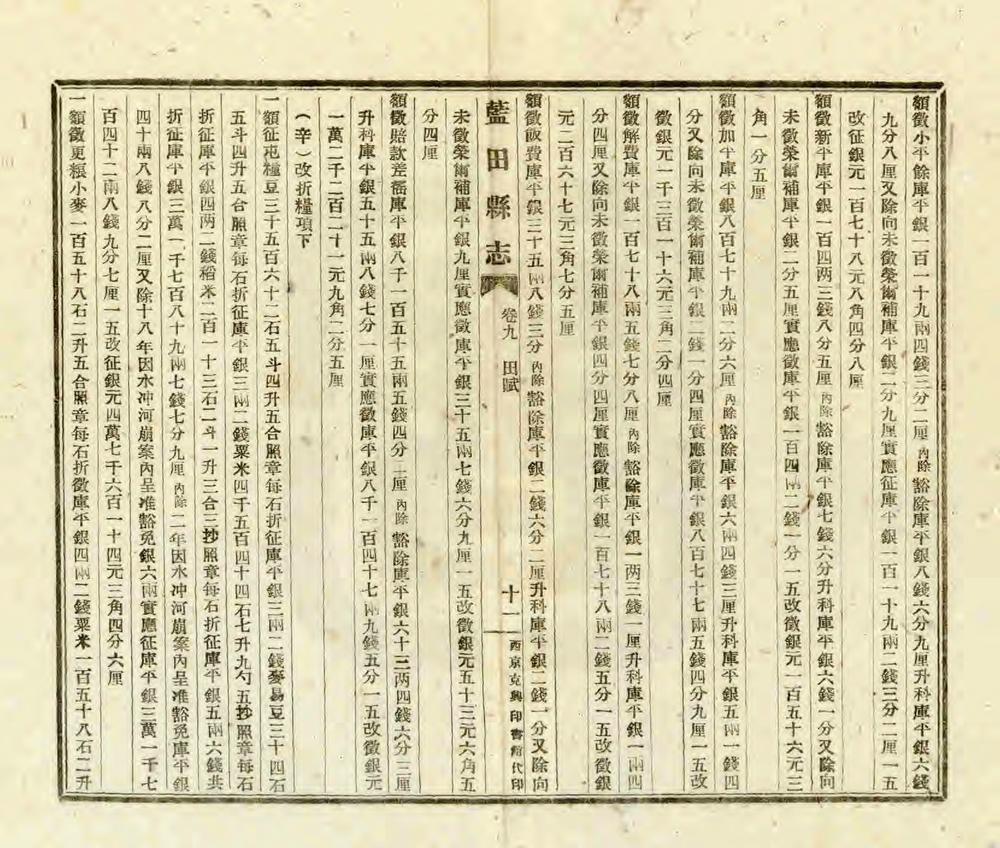 額徵小平餘庫平銀一百一十九兩四錢三分二厘內除豁除庫平銀八錢六分九厘升科庫平銀六錢
九分八厘又除向未徵榮爾補庫平銀二分九厘實應征庫平銀一百一十九兩二錢三分二厘一五
改征銀元一百七十八元八角四分八厘
額徵新平庫平銀一百四两三錢八分五厘內除豁除庫平銀七錢六分升科庫平銀六錢一分又除向
未徵榮爾補庫平銀二分五厘實應徵庫平銀一百四兩二錢一分一五改徵銀元一百五十六元三
角一分五厘
額徵加平庫平銀八百七十九兩二分六厘內除豁除庫平銀六兩四錢三厘升科庫平銀五兩一錢四
分又除向未徵榮爾補庫平銀二錢一分四厘實應徵庫平銀八百七十七兩五錢四分九厘一五改
徵銀元一千三百一十六元三角二分四厘
額徵解費庫平銀一百七十八兩五錢七分八厘內除豁除庫平銀一两三錢一厘升科庫平銀一兩四
分四厘又除向未徵榮爾補庫平銀四分四厘實應徵庫平銀一百七十八兩二錢五分一五改徵銀
元二百六十七元三角七分五厘
額徵飯費庫平銀三十五兩八錢三分內除豁除庫平銀二錢六分二厘升科庫平銀二錢一分又除向
藍田縣志 卷九 田賦 十一 西京克興印書館代印
未徵榮爾補庫平銀九厘實應徵庫平銀三十五兩七錢六分九厘一五改徵銀元五十三元六角五
分四厘
額徵賠款差徭庫平銀八千一百五十五兩五錢四分一厘內除豁除庫平銀六十三两四錢六分三厘
升科庫平銀五十五兩八錢七分一厘實應徵庫平銀八千一百四十七兩九錢五分一五改徵銀元
一萬二千二百二十一元九角二分五厘
（辛）改折糧項下
一額征屯糧豆三千五百六十二石五斗四升五合照章每石折征庫平銀三兩二錢䴡易豆三十四石
五斗四升五合照章每石折征庫平銀三兩二錢粟米四千五百四十四石七升九勺五抄照章每石
折征庫平銀四两二錢稻米二百一十三石二斗一升三合三抄照章每石折征庫平銀五兩六錢共
折征庫平銀三萬一千七百八十九兩七錢七分九厘內除二年因水冲河崩案內呈准豁免庫平銀
四十兩八錢八分二厘又除十八年因水冲河崩案內呈准豁免銀六兩實應征庫平銀三萬一千七
百四十二兩八錢九分七厘一五改征銀元四萬七千六百一十四元三角四分六厘
一額徵更糧小麥一百五十八石二升五合照章每石折徵庫平銀四兩二錢粟米一百五十八石二升